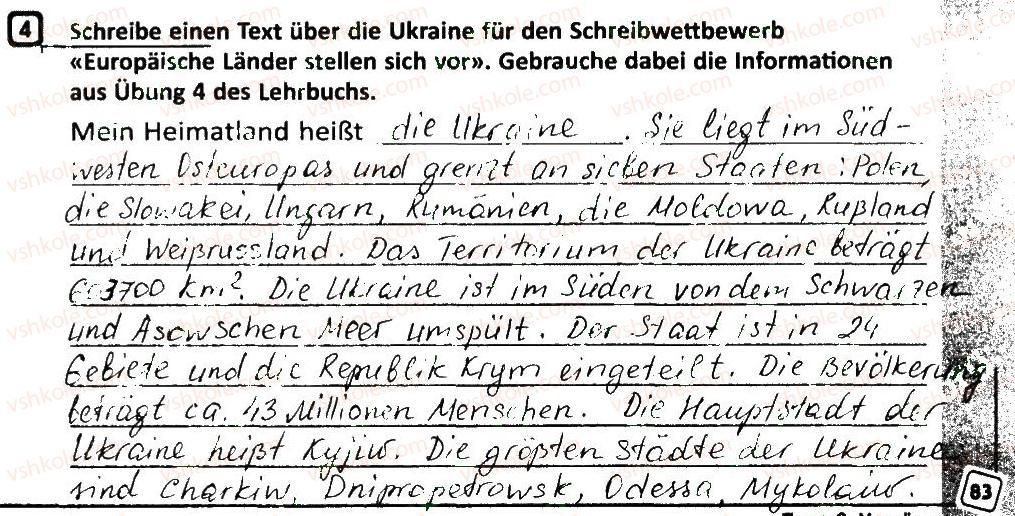 4 Schreibe einen Text über die Ukraine für den Schreibwettbewerb
«Europäische Länder stellen sich vor». Gebrauche dabei die Informationen
aus Übung 4 des Lehrbuchs.
Mein Heimatland heißt die Ukraine. Sie liegt im Süd-
westen Osteuropas und grenzt an sieben Staaten: Polen,
die Slowakei, Ungarn, Rumänien, die Moldowa, Rußland
und Weißrussland. Das Territorium der Ukraine beträgt
603700 km². Die Ukraine ist im Süden von dem Schwarzen
und Asowschen Meer umspült. Der Staat ist in 24
Gebiete und die Republik Krym eingeteilt. Die Bevölkerung
beträgt ca. 43 Millionen Menschen. Die Hauptstadt der
Ukraine heißt Kyjiw. Die größten Städte der Ukraine
sind Charkiw, Dnipropetrowsk, Odessa, Mykolaiw.
83